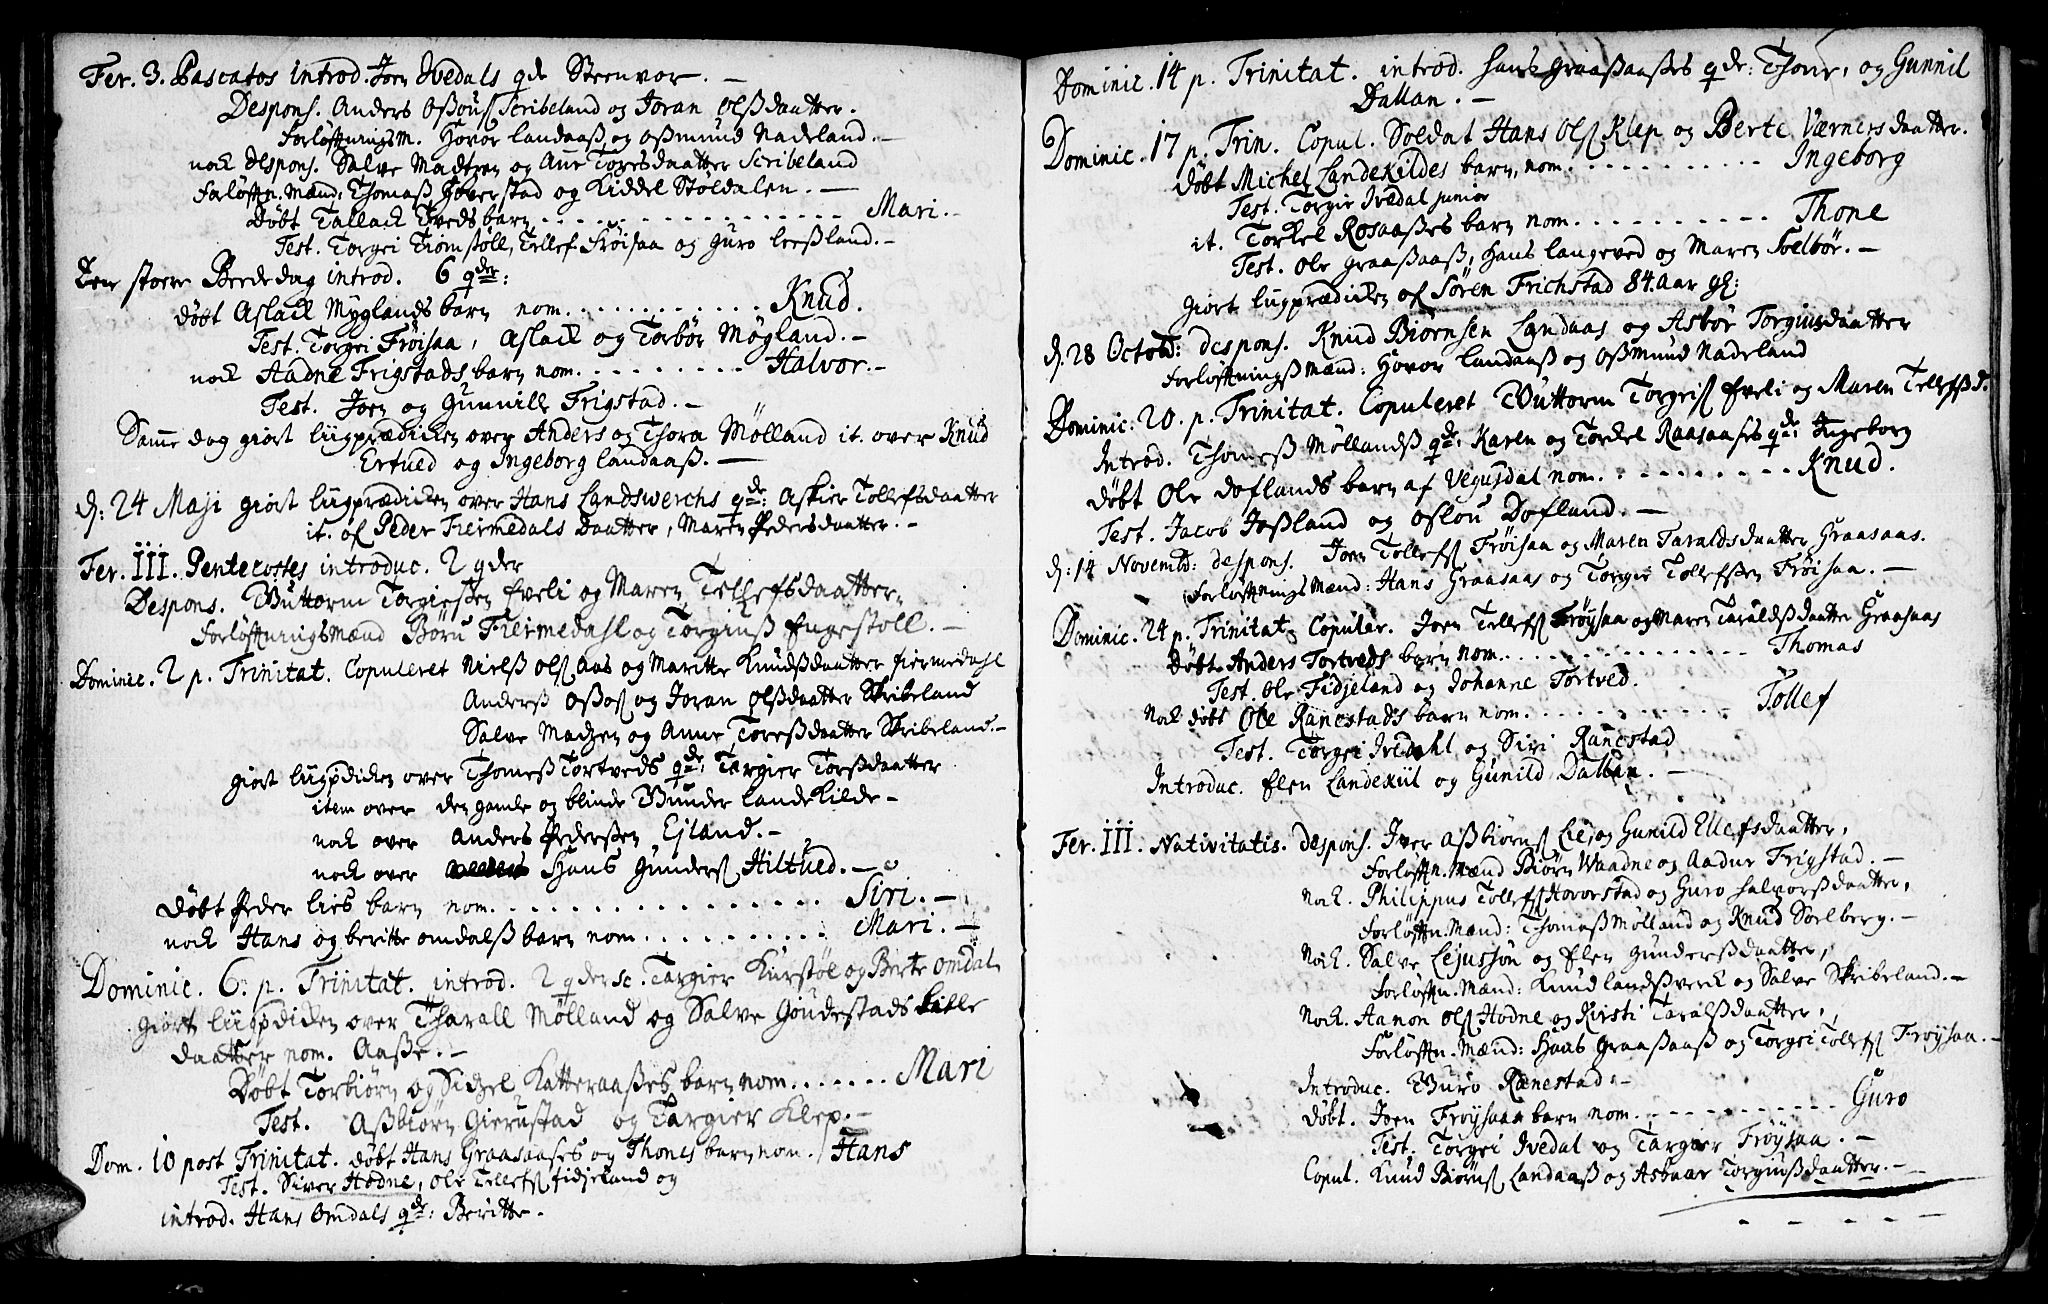 Fer. 3. Pascatos introd. Joen Ivedals qde Steenvor. —
Despons. Anders Oßouſ Scribeland og Joran Olßdaatter.
forløftningsm. Hovor landaaß og Oßmund Nadeland. —
nock despons. Salve Madtzen og Ane Toresdaatter Scribeland
forløftn. Mænd: Thomaß Hoverstad og Kiddel Stöldalen. —
Döbt Tallack Tveds barn . . . . . . Mari. —
Test. Torgei Tiomstöll, Tellef Fröisaa og Guro leeßland. —
Den stoere Bededag introd. 6 qder:
döbt Aslack Myglands barn nom. . . . . . . Knud.
Test. Torgei Fröisaa, Aslack og Torbör Mögland. —
nock Aadne Frigstads barn nom. . . . . . . Halvor. —
Test. Joen og Gunnille Frigstad. —
Samme dag giort liigprædicken over Anders og Thora Mölland it. over Knud
Ertved og Ingeborg landaaß. —
d: 24 Maji giort liigprædicken over Hans Landswerchs qde: Askier Tollefsdaatter
it. of Peder Fiermedals daatter, Maren Pedersdaatter. —
Fer. III. Pentecostes introduc. 2 qder
Despons. Guttorm Torgiesßen Eveli og Maren Tellefsdaatter,
forløftningsmænd Böru Fiermedahl og Torgiuß Engestöll. —
Dominic. 2 p. Trinitat. Copuleret Nielß Olſ Aas og Maritte Knudßdaatter fiermedahl
Anderß Oßoſ og Joran Olßdaatter Skribeland
Salve Madzen og Anne Toreßdaatter Skribeland. —
giort liigpdicken over Thomeß Tortveds qde: Targier Torßdaatter
item over den gamle og blinde Gunder landekilde —
nock over Anders Pederßen Ejland. —
nock over Hans Gunderſ Hiltved. —
Döbt Peder lies barn nom. . . . . . . Siri. —
nock Hans og beritte omdalß barn nom. . . . . . . Mari. —
Dominic. 6. p. Trinitat. introd. 2 qder sc. Targier Kirstöl og Berte omdal
giort liigpdicken over Tharall Mölland og Salve Goudestads lille
daatter nom. Aaße. —
Döbt Torbiörn og Sidzel Katteraaßes barn nom. . . . . . . Mari
Test. Aßbiörn Gierustad og Targier Klep. —
Dom. 10 post Trinitat. döbt Hans Graasaases og Thones barn nom. / Hans
Test. Siver Hodne, Ole Tellefſ fidjeland og
introd. Hans Omdals qde: Beritte.
Dominic. 14 p. Trinitat. introd. Hans Graaßaaßes qde: Thone, og Gunnil
Dallan. —
Dominic. 17 p. Trin. Copul. Soldat Hans Olſ Klep og Berte Værnersdaatter.
döbt Michel Landekildes barn, nom. . . . . . . Ingeborg
Test. Torgie Ivedal junior
it. Torkel Rosaaßes barn nom. . . . . . . Thone
Test. Ole Graaßaaß, Hans langeved og Maren Soelbör. —
Giort liigprædicken of Sören Frichstad 84 aar gl:
d. 28 Octob: despons. Knud Biornsen Landaas og Asbör Torgiusdaatter
forløftningßmænd: Hovor landaaß og Oßmund Nadeland
Dominic. 20. p. Trinitat. Copuleret Guttorm Torgeiſ Eveli og Maren Tellefßd.
Introd. Thomeß Möllandß qde: Karen og Torkel Raasaases qde: Ingeborg
döbt Ole Doflands barn af Vegusdal nom. . . . . . . Knud.
Test. Jacob Joßland og Oslou Dofland. —
d: 14 Novemb: despons. Joen Tollefſ Fröisaa og Maren Taraldsdaatter Graasaas.
forløftnings Mænd: Hans Graasaas og Torgie Tollefsen Fröisaa. —
Dominic. 24 p. Trinitat. Copuler. Joen Tellefſ Fröysaa og Maren Taraldßdaatter Graasaas
Döbt Anders Tortveds barn nom. . . . . . . Thomas
Test. Ole Fidjeland og Johanne Tortved.
Nock döbt Ole Ranestads barn nom. . . . . . . Tollef
Test. Torgei Ivedahl og Siri Ranestad
Introduc. Elen Landekiil og Gunild Dallan. —
Fer. III. Nativitatis. despons. Iver Aßbiörnſ Lie, og Gunild Ellefsdaatter,
forløftn. Mænd Biörn Waadne og Aadne Frigstad. —
Nock. Philippus Tollefſ Hovorstad og Guro Halvorßdaatter,
forløftn. Mænd: Thomeß Mölland og Knud Soelberg. —
Nock. Salve Lejusson og Elen Gunderßdaatter,
forløftn. Mænd: Knud landßverk og Salve Skribeland. —
Nock. Aanon Olſ Hodne og Kirsti Taralßdaatter,
forløftn. Mænd: Hans Graaßaaß og Torgei Tollefſ Fröysaa. —
Introduc. Guro Ranestad. —
Döbt. Joen Fröysaas barn nom. . . . . . . Guro
Test. Torgei Ivedal og Targier Fröysaa. —
Copul. Knud Biörnſ Landaaß og Asbuur Torgiußdaatter. —